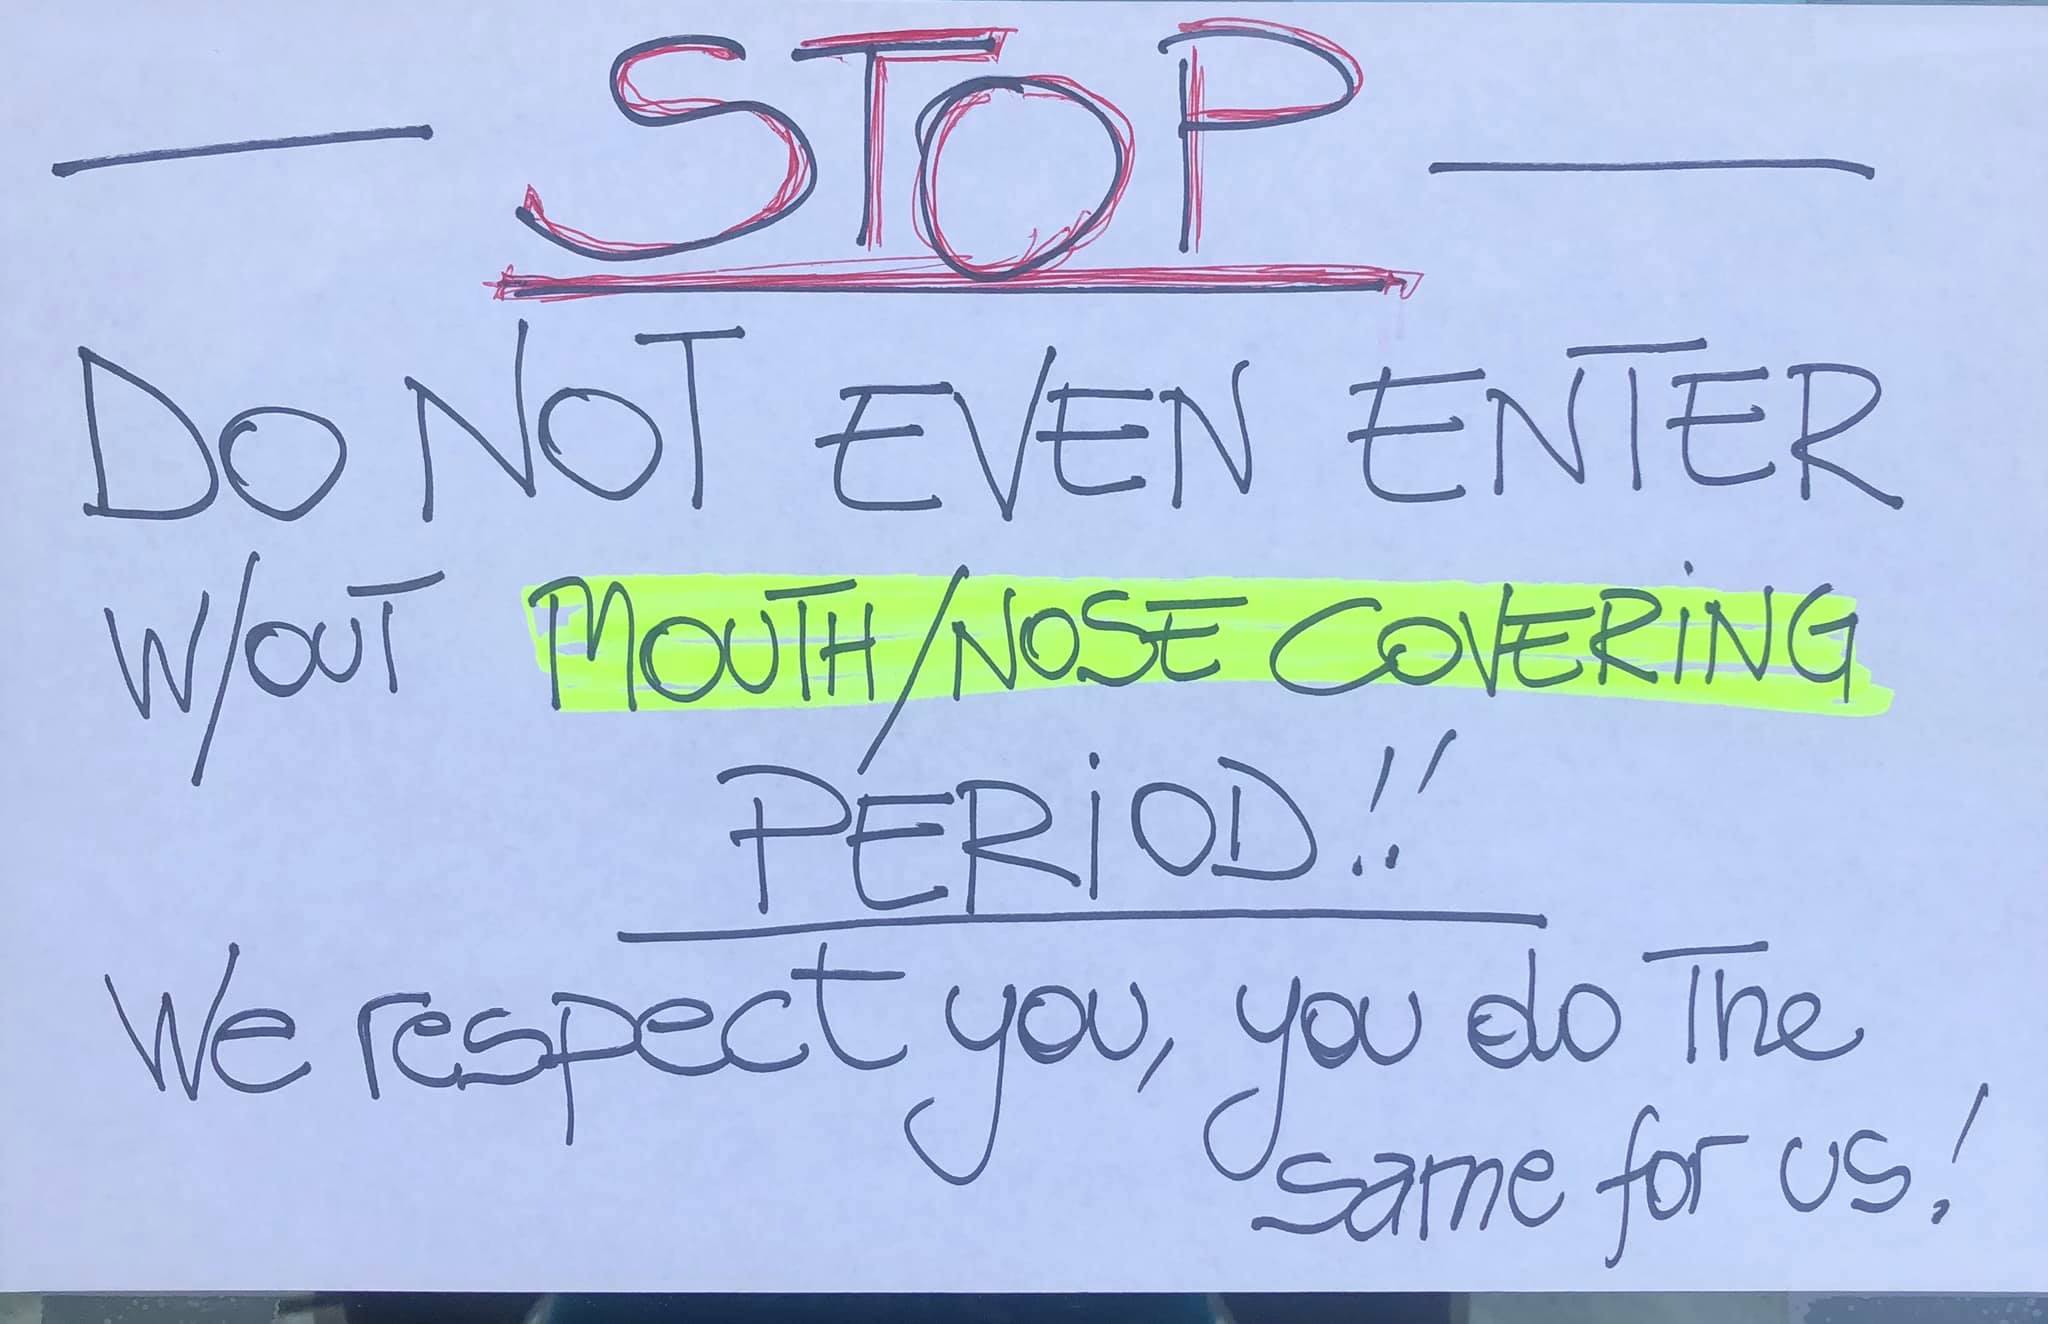 — STOP —
DO NOT EVEN ENTER
W/OUT MOUTH/NOSE COVERING
PERIOD!!
We respect you, you do The
same for us!